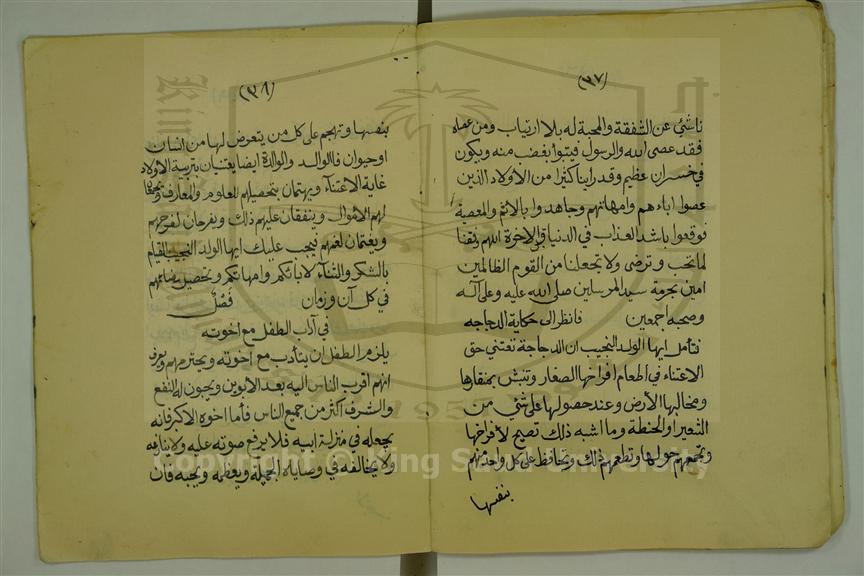 (٣٧)
ناشئ عن الشفقة والمحبة له بلا ارتياب ومن عصاه
فقد عصى الله والرسول فيتبوا بغضب منه ويكون
في خسران عظيم وقد راينا كثيرا من الاولاد الذين
عصوا اباءهم وامهاتهم وجاهدوا بالاثم والمعصية
فوقعوا باشد العذاب في الدنيا قبل الاخرة اللهم وفقنا
لما تحب وترضى ولا تجعلنا من القوم الظالمين
امين بحرمة سيد المرسلين صلى الله عليه وعلى آله
وصحبه اجمعين فانظر الى حكاية الدجاجه
تأمل ايها الولد النجيب ان الدجاجة تعتني حق
الاعتناء في اطعام افراخها الصغار وتنبش بمنقارها
ومخالبها الأرض وعند حصولها على شئ من
الشعير والحنطة وما اشبه ذلك تصيح لأفراخها
وتجمعهم حولها وتطعمهم ذلك وتحافظ على كل واحد منهم
بنفسها
(٣٨)
بنفسها وتهجم على كل من يتعرض لها من انسان
او حيوان فالوالد والوالدة ايضا يعتنيان بتربية الاولاد
غاية الاعتناء ويهتمان بتحصيلهم للعلوم والمعارف
لهم الاموال وينفقان عليهم ذلك ويفرحان لفرحهم
ويغتمان لغمهم فيجب عليك ايها الولد النجيب القيام
بالشكر والثناء لابائكم وامهاتكم وتحصيل رضائهم
في كل آن وزمان فصل
في آداب الطفل مع اخوته
يلزم الطفل ان يتأدب مع اخوته ويحترمهم ويعرف
انهم اقرب الناس اليه بعد الابوين ويحبون له النفع
والشرف اكثر من جميع الناس فأما اخوه الاكبر فانه
يجعله في منزلة ابيه فلا يرفع صوته عليه ولا ينازعه
ولا يخالفه في وصاياه الجميلة ويعظمه ويحبه فان
Copyright © King Saud University
1957